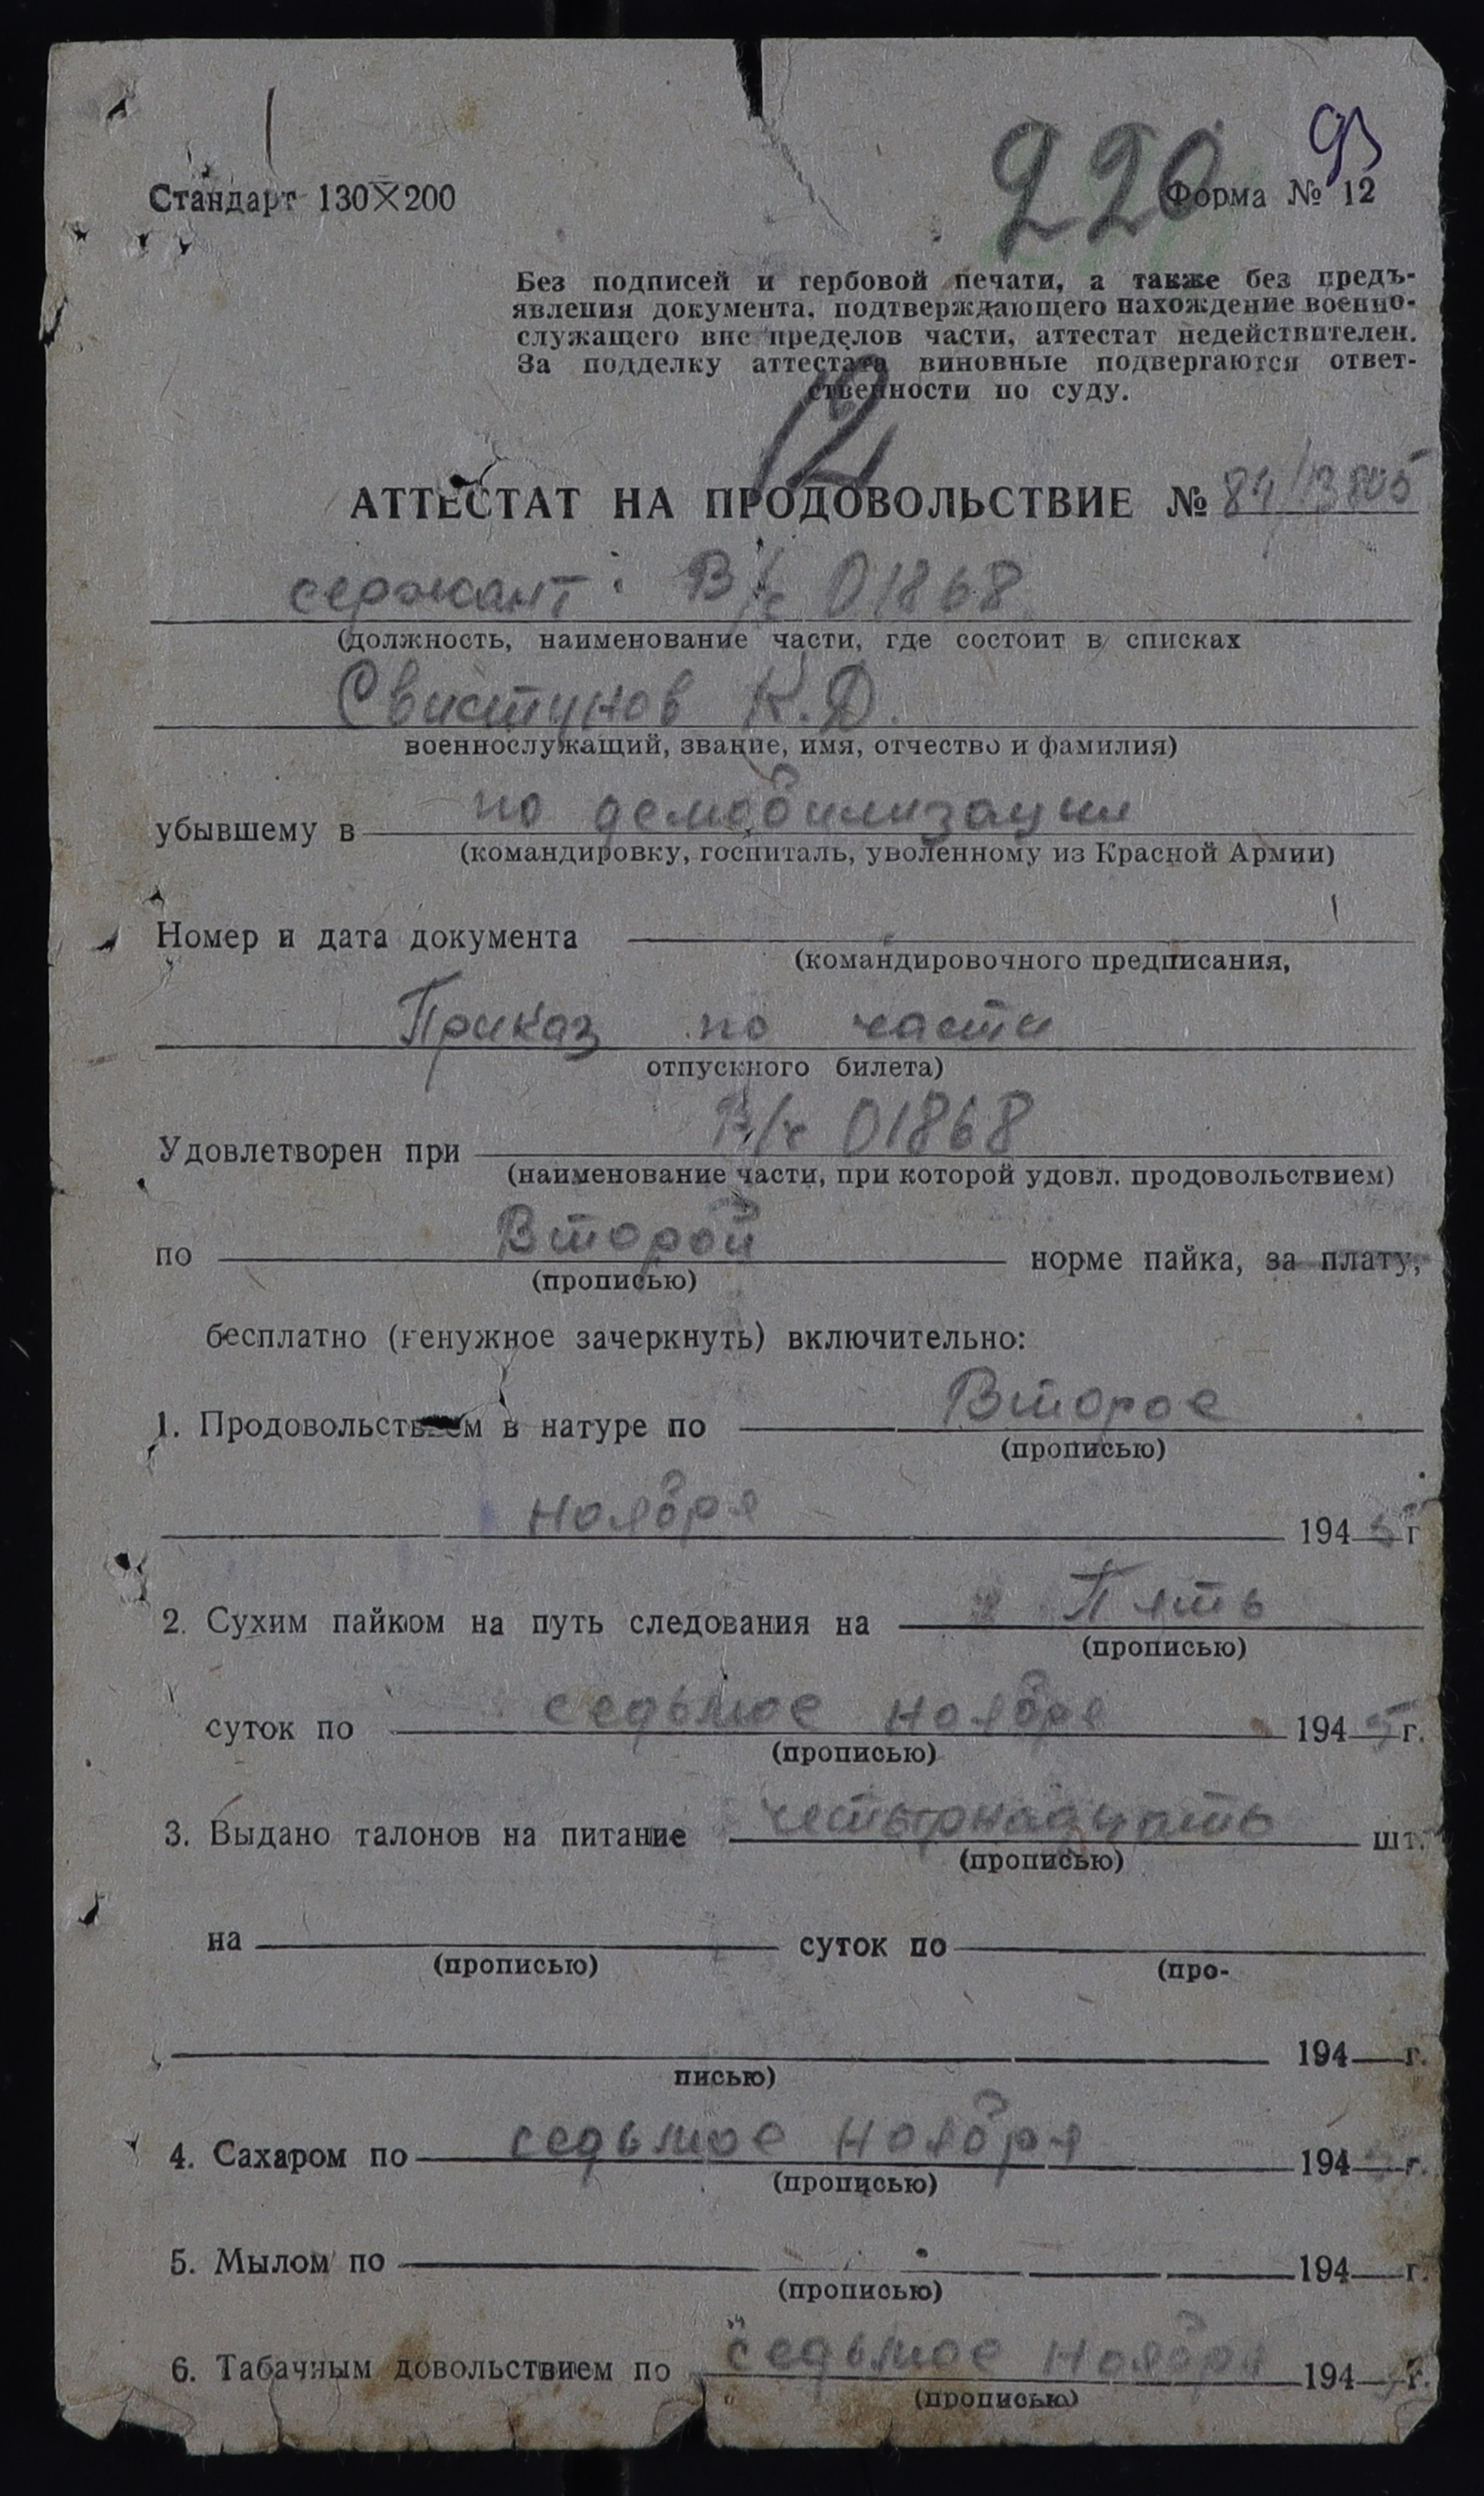 220
93
Стандарт 130×200
Форма № 12
Без подписей и гербовой печати, а также без предъ-
явления документа, подтверждающего нахождение военно-
служащего вне пределов части, аттестат недействителен.
За подделку аттестата виновные подвергаются ответ-
ственности по суду.
12
АТТЕСТАТ НА ПРОДОВОЛЬСТВИЕ №
сержант: В/ч 01868
(должность, наименование части, где состоит в списках
Свистунов К.Д.
военнослужащий, звание, имя, отчество и фамилия)
убывшему в по демобилизации
(командировку, госпиталь, уволенному из Красной Армии)
Номер и дата документа
(командировочного предписания,
Приказ по части
отпускного билета)
Удовлетворен при В/ч 01868
(наименование части, при которой удовл. продовольствием)
по Второй норме пайка, за плату,
(прописью)
бесплатно (ненужное зачеркнуть) включительно:
1. Продовольствием в натуре по Второе
(прописью)
ноября 1945 г
2. Сухим пайком на путь следования на Пять
(прописью)
суток по седьмое ноября 1945 г.
(прописью)
3. Выдано талонов на питание четырнадцать шт.
(прописью)
на суток по
(прописью) (про-
194 г.
писью)
4. Сахаром по седьмое ноября 1945 г.
(прописью)
5. Мылом по 194 г.
(прописью)
6. Табачным довольствием по седьмое ноября 194 г.
(прописью)